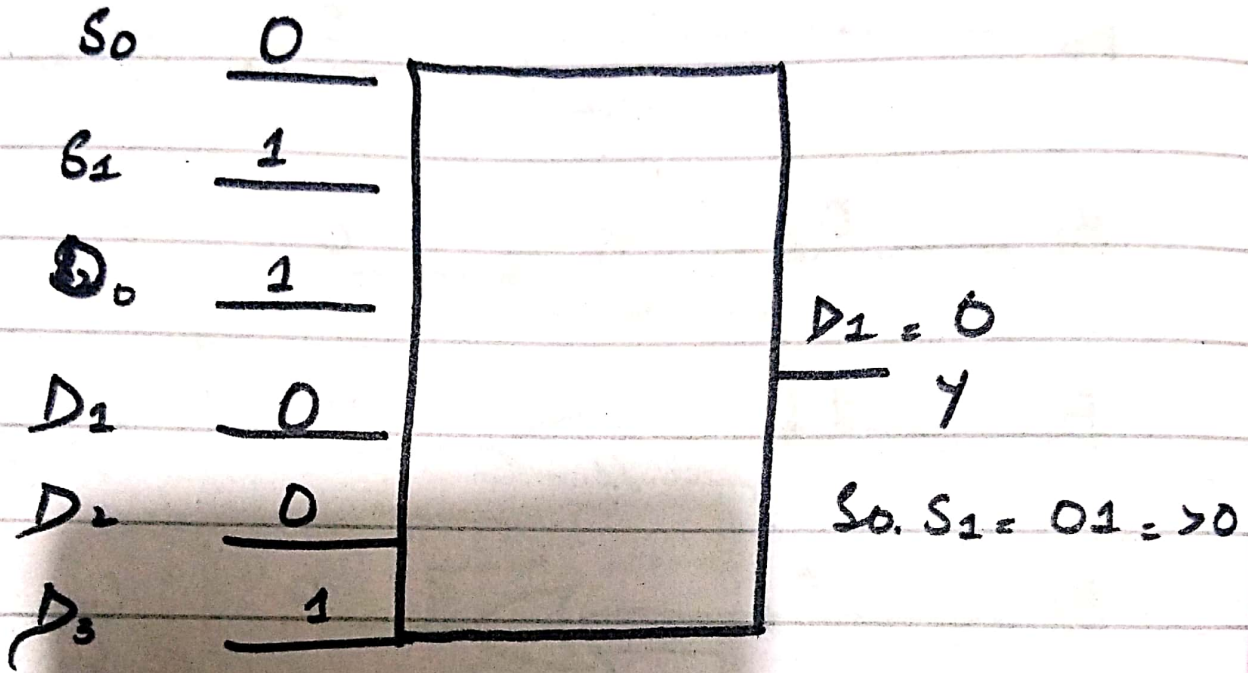 S0 0
S1 1
D0 1
D1 0
D2 0
D3 1
D1 = 0
Y
S0. S1 = 01 => 0